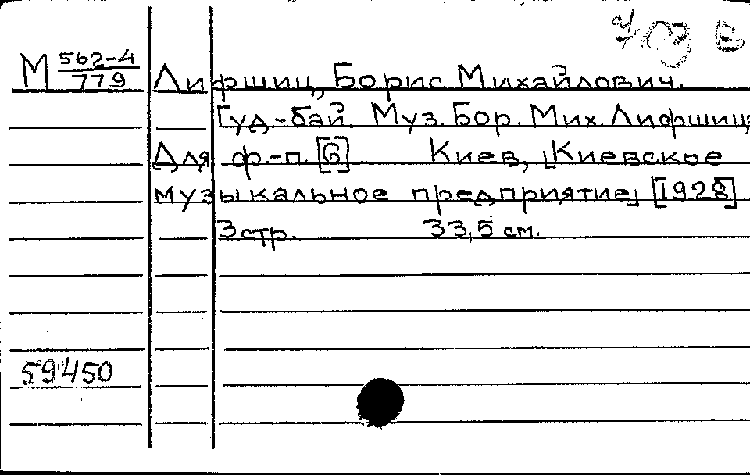 М 562-4/779 Лифшиц, Борис Михайлович.
Гуд-бай. Муз. Бор. Мих. Лифшица
Для ф.-п. [6] Киев, [Киевское
музыкальное предприятие] [1928]
3 стр. 33,5 см.
59450